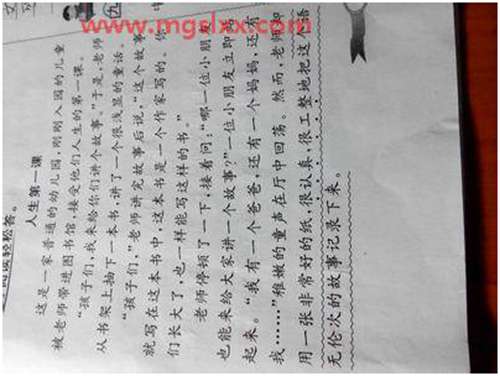 www.mgslxx.com
阅读轻松答。
人生第一课
这是一家普通的幼儿园,刚刚入园的儿童
被老师带进图书馆,接受他们人生的第一课。
“孩子们,我来给你们讲个故事。”于是,老师
从书架上抽下一本书,讲了一个很浅显的童话。
“孩子们,”老师讲完故事后说,“这个故事
就写在这本书中,这本书是一个作家写的。你
们长大了,也一样能写这样的书。”
老师停顿了一下,接着问:“哪一位小朋友
也能来给大家讲一个故事?”一位小朋友立即
起来。“我有一个爸爸,还有一个妈妈,还有
我……”稚嫩的童声在厅中回荡。然而,老师却
用一张非常好的纸,很认真、很工整地把这个语
无伦次的故事记录下来。